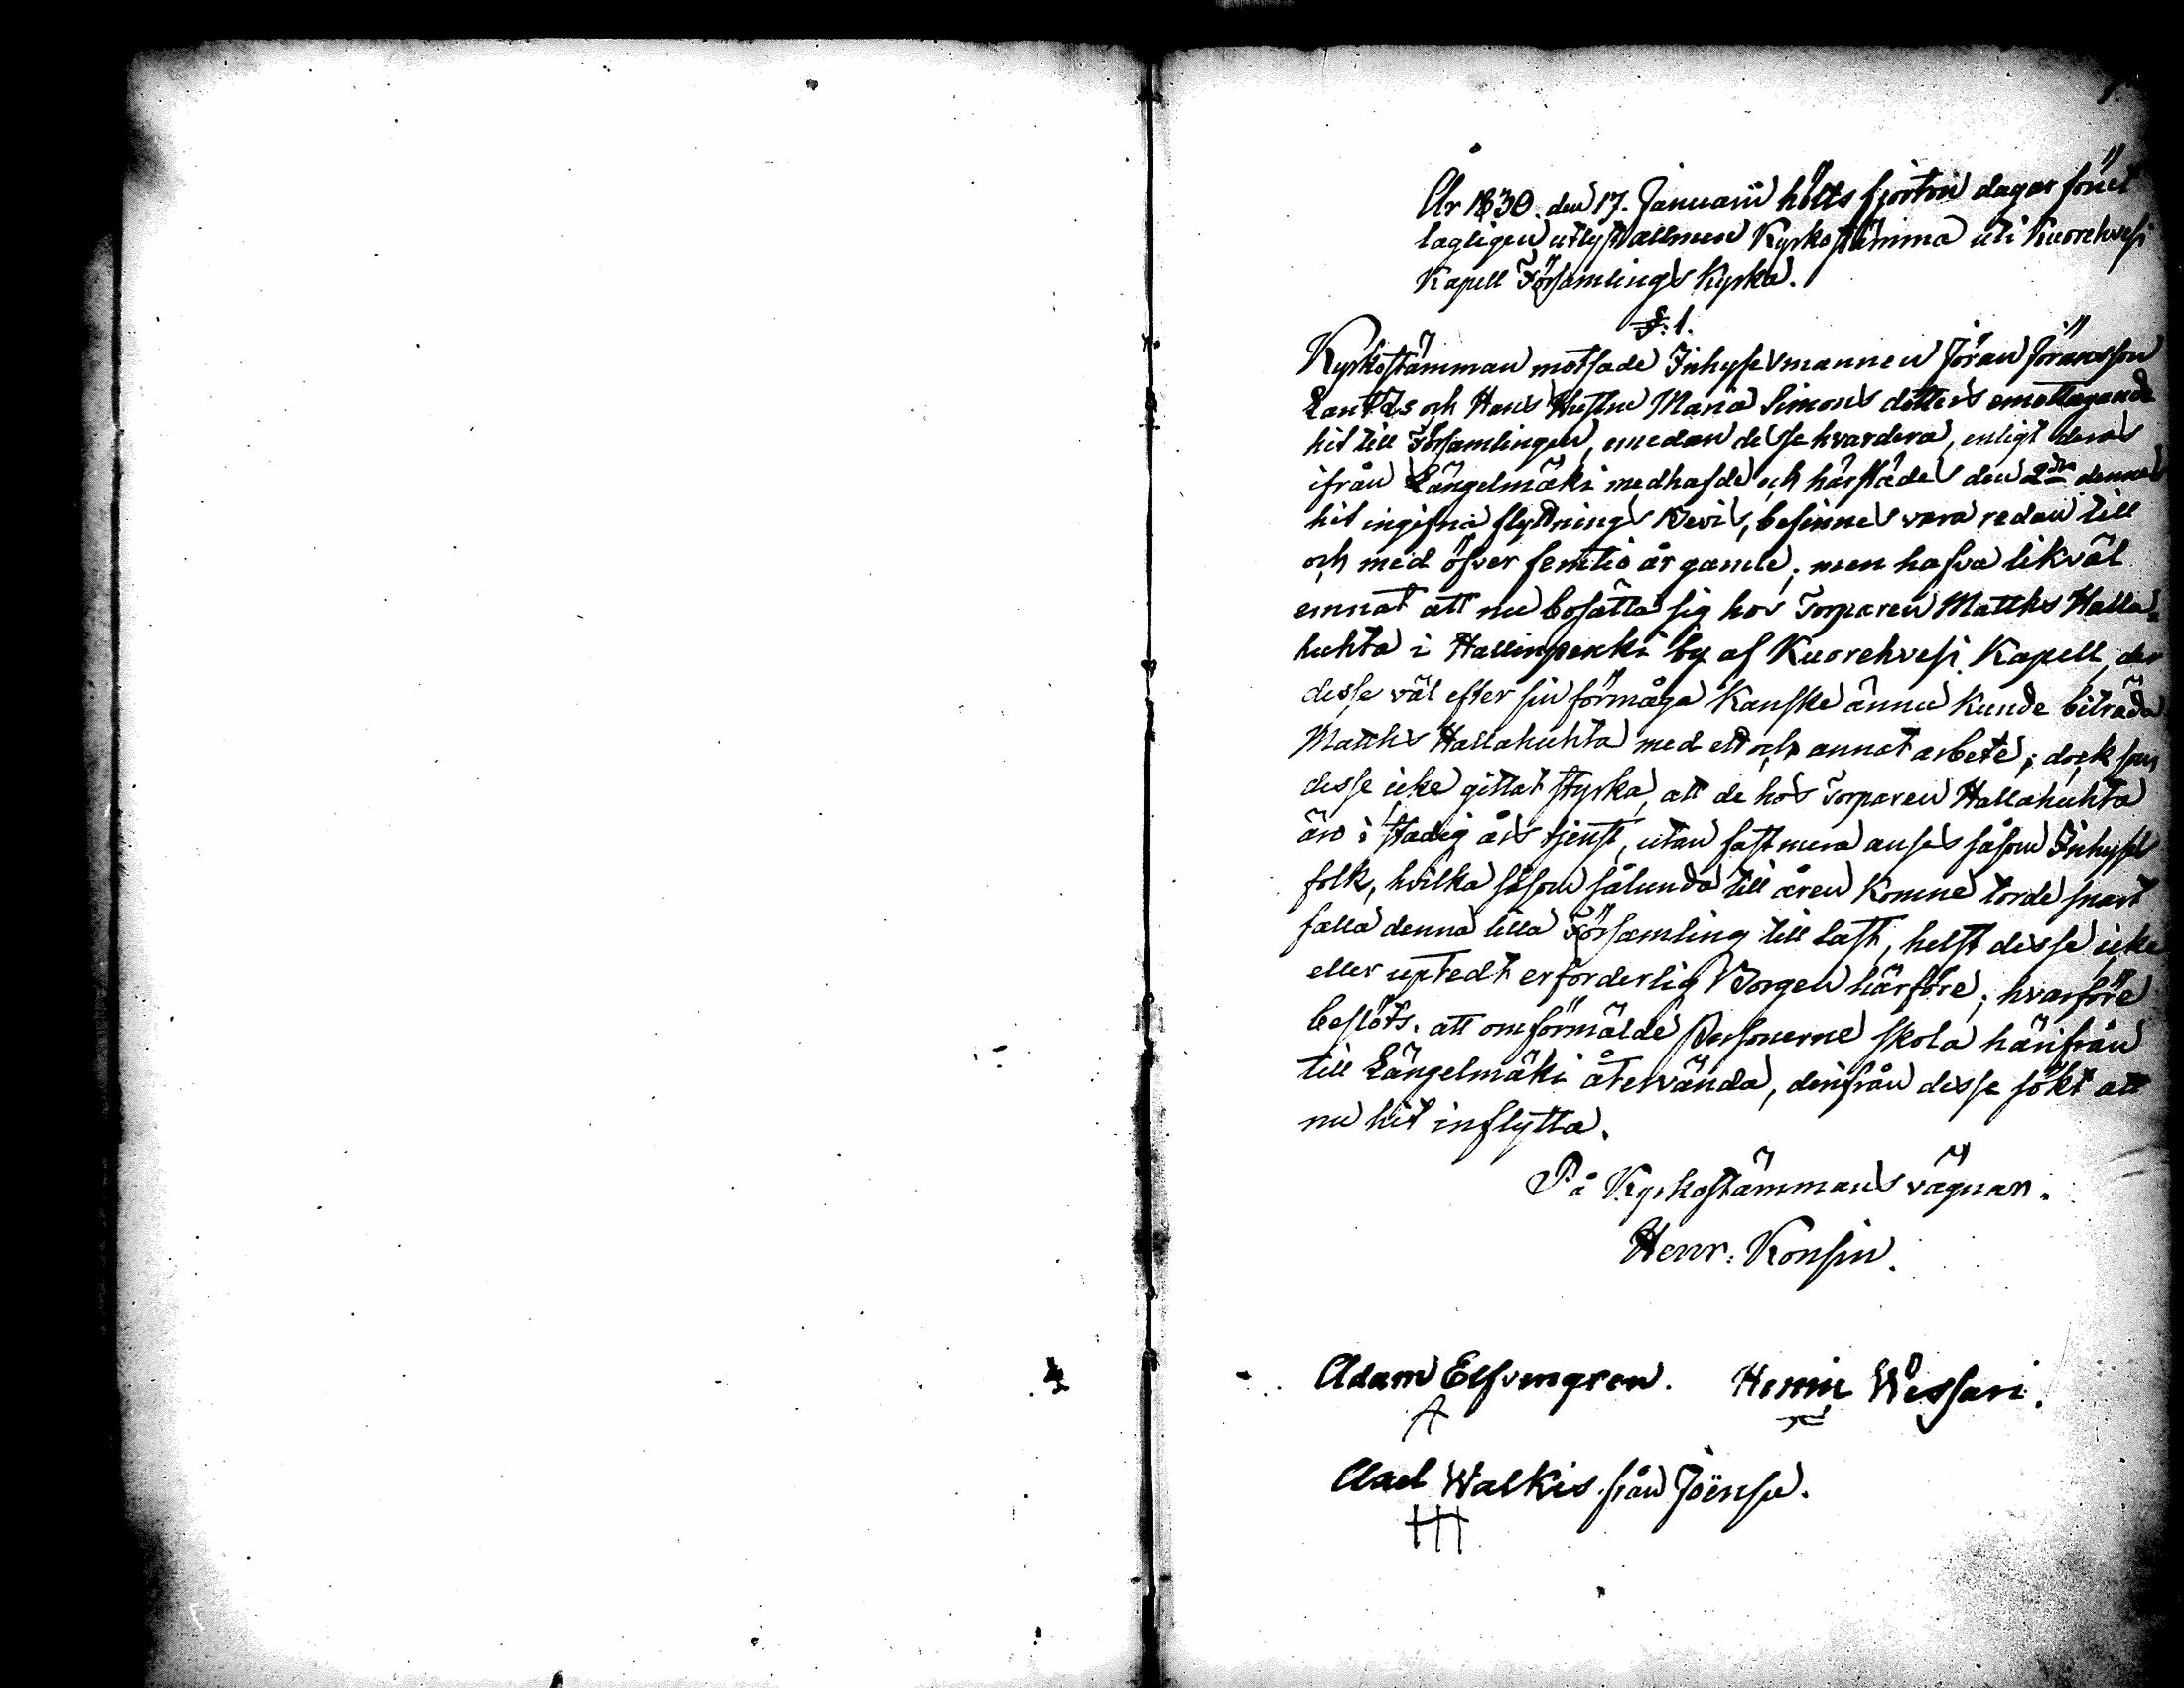 År 1830. den 17. Januarii hölts fjorton dagar förut
lagligen utlyst allmen Kyrkostämma uti Kuorehvesi
Kapell Församlings Kyrka.
§: 1.
Kyrkostämman motsade Inhysesmannen Jöran Jöransson
Lantz's och Hans Hustru Maria Simons dotters emottagande
hit till Församlingen, emedan desse hvardera, enligt deras
ifrån Längelmäki medhafde och härstädes den 2dra dennes
hit ingifna flyttnings Bevis, befinnes vara redan till
och med öfver femtio år gamle; men hafva likväl
emnat att nu bosätta sig hos Torparen Matths Halla-
huhta i Hallinpenki by af Kuorehvesi Kapell, der
desse väl efter sin förmåga Kanske ännu Kunde biträda
Matths Hallahuhta med ett och annat arbete; dock som
desse icke gittat styrka, att de hos Torparen Hallahuhta
äro i stadig års tjenst, utan fastmera anses såsom Inhyses
folk, hvilka såsom sålunda till åren Komne torde snart
falla denna lilla Församling till last, helst desse icke
eller uptedt erforderlig Borgen härföre; hvarföre
beslöts, att omförmälde Personerne skola härifrån
till Längelmäki återvända, derifrån desse sökt att
nu hit inflytta.
På Kyrkostämmans vägnar.
Henr: Konsin.
Adam Elfvengren. Henric Wessari.
A
Axel Walkis från Jöensu.